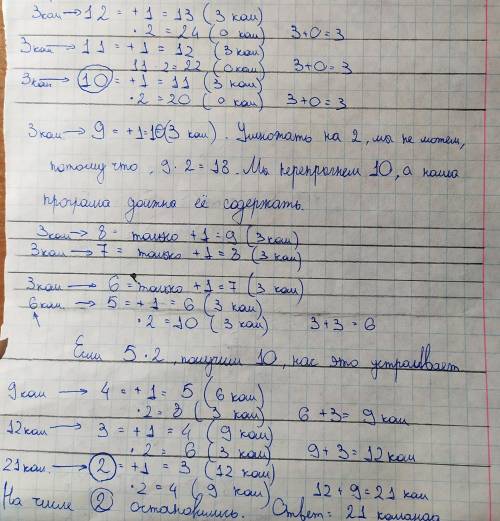 3кам → 12 = +1 = 13 (3 кам)
·2 = 24 (0 кам) 3+0=3
3кам → 11 = +1 = 12 (3кам)
11·2=22 (0кам) 3+0=3
3кам → 10 = +1 = 11 (3 кам)
·2 = 20 (0 кам) 3+0=3
3кам → 9 = +1=10(3 кам). Умножать на 2, мы не можем,
потому что, 9·2=18. Мы перепрыгнем 10, а наша
програма должна её содержать.
3кам → 8 = только +1=9 (3кам)
3кам → 7 = только +1=8 (3кам)
3кам → 6 = только +1=7 (3кам)
6кам → 5 = +1 = 6 (3кам)
·2 = 10 (3 кам) 3+3=6
Если 5·2, получим 10, нас это устраивает
9кам → 4 = +1 = 5 (6 кам)
·2 = 8 (3 кам) 6+3= 9кам
12кам → 3 = +1 = 4 (9 кам)
·2 = 6 (3 кам) 9+3=12кам
21кам. → 2 = +1 = 3 (12 кам)
·2 = 4 (9 кам) 12+9=21 кам
На числе 2 остановились. Ответ: 21 команда